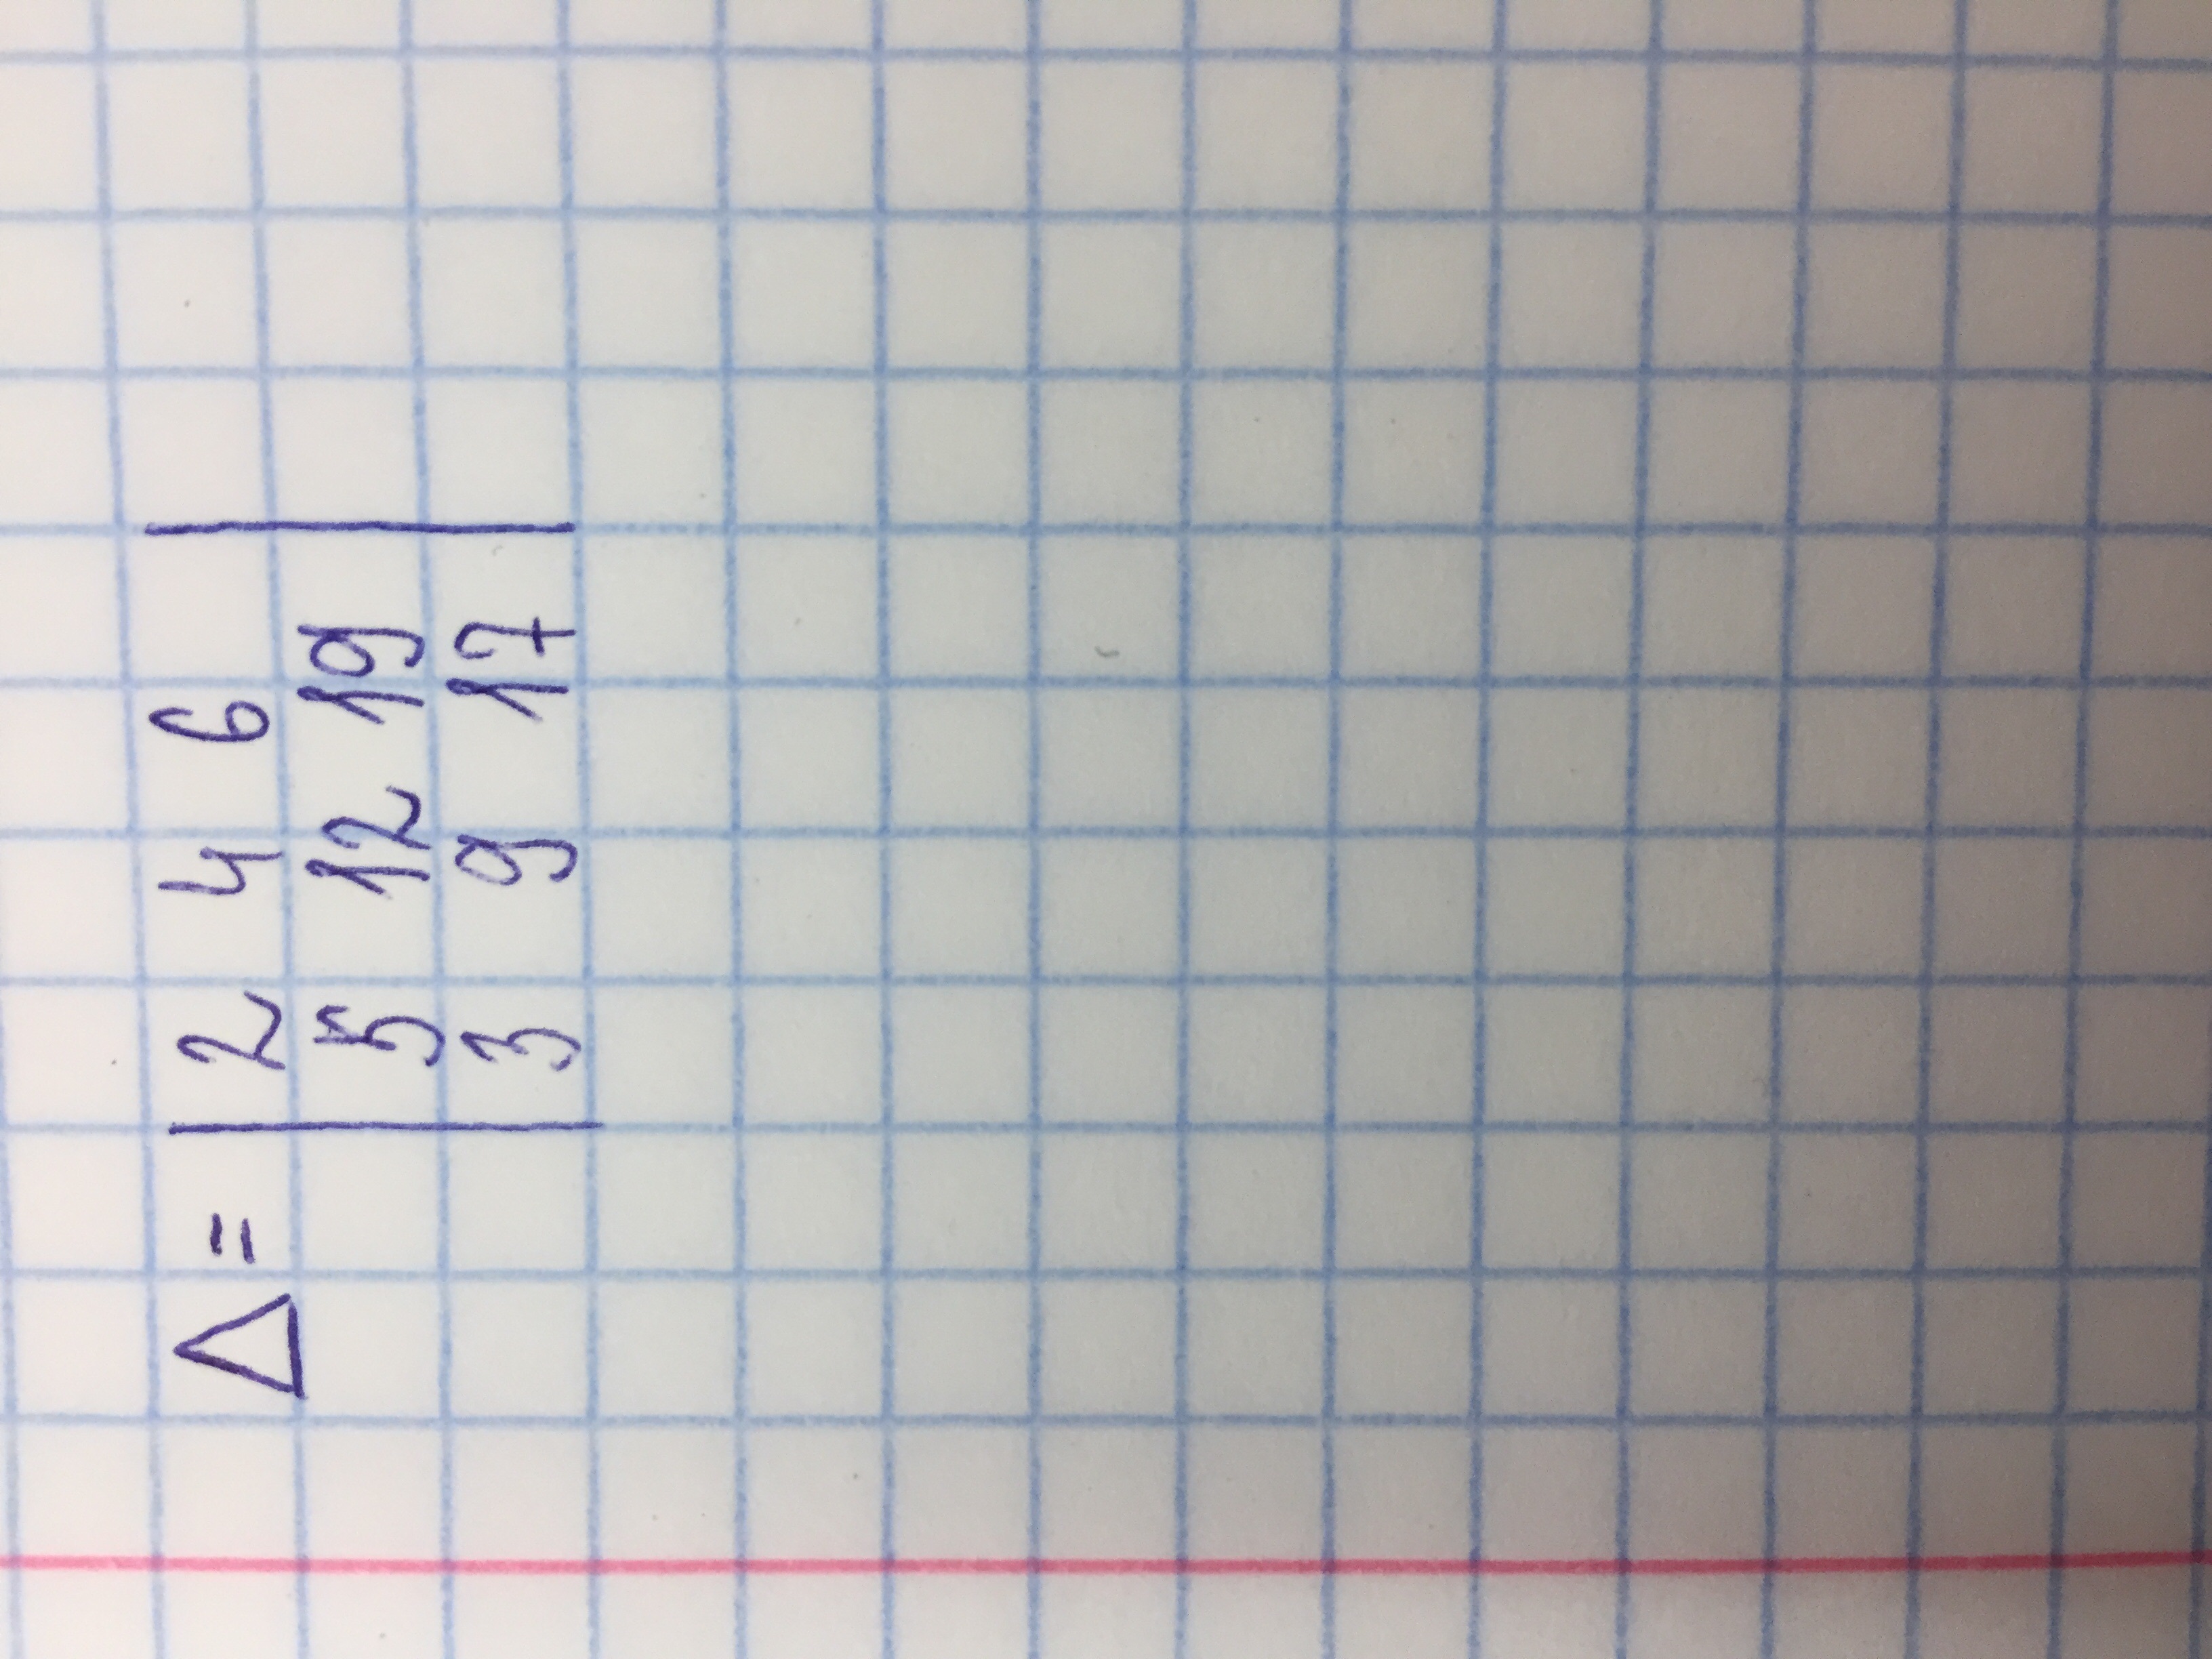 Δ = | 2 4 6 |
5 12 19
3 9 17